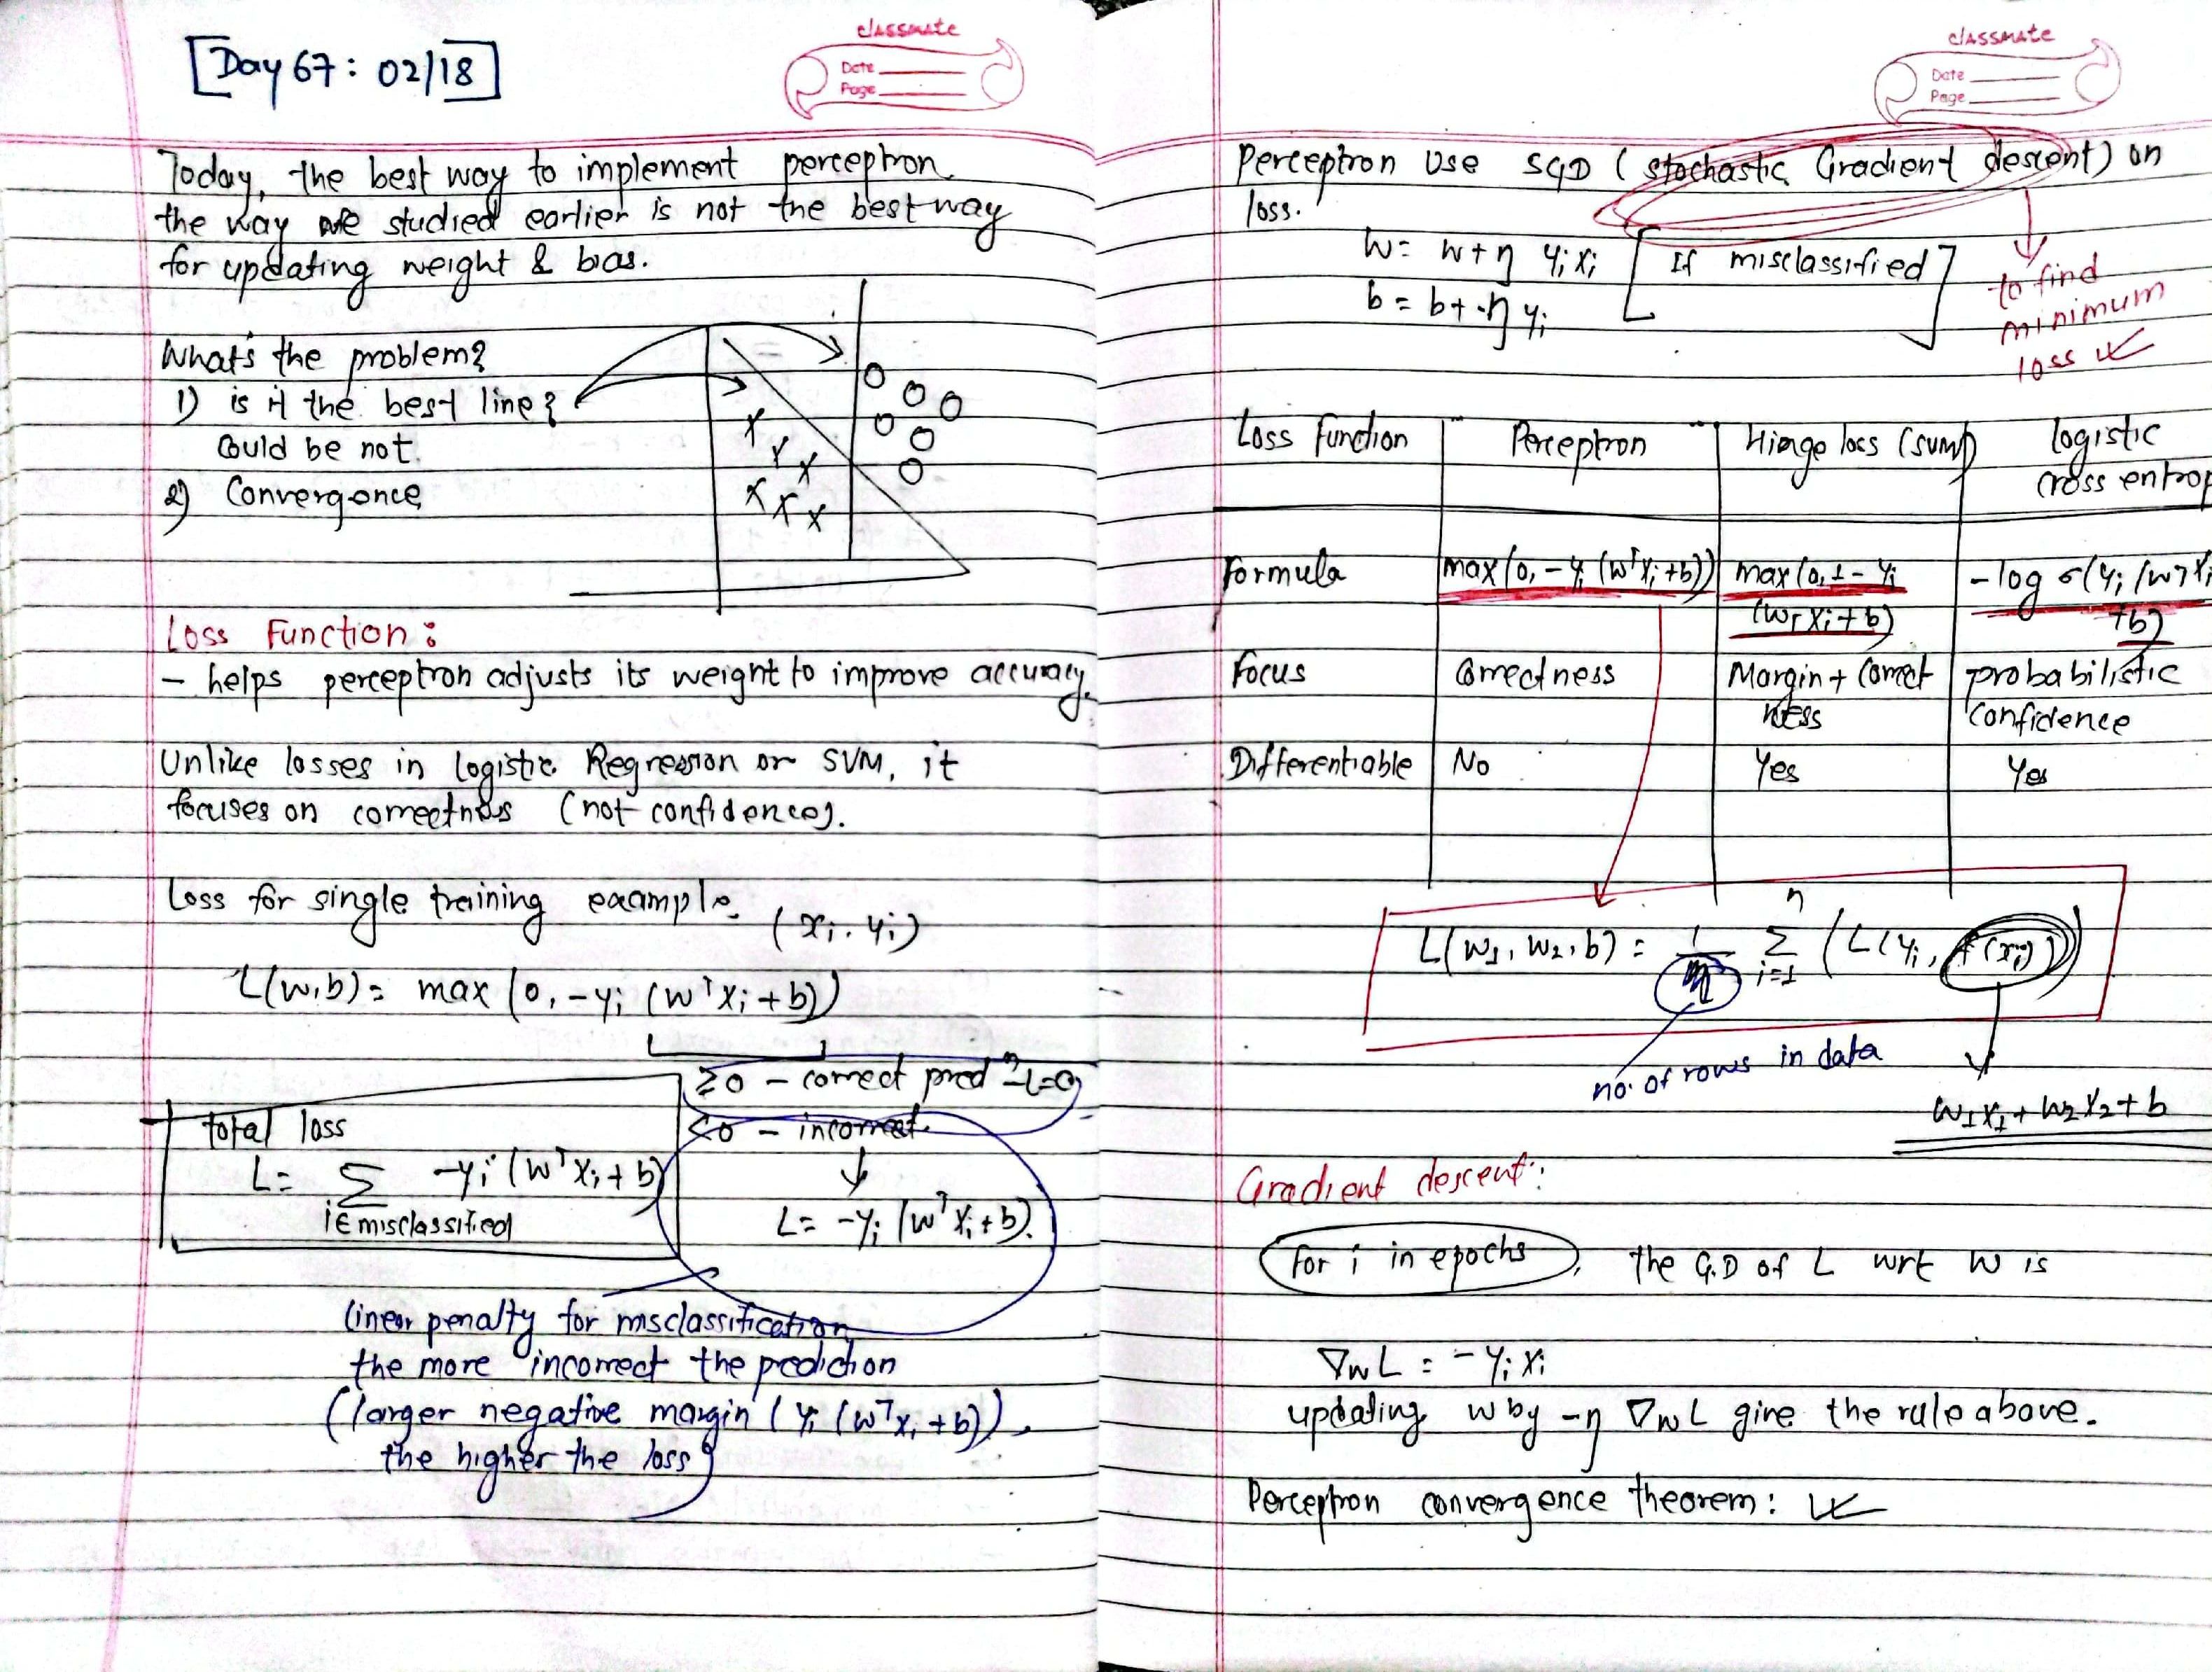 [Day 67: 02/18]
classmate
Date
Page
Today, the best way to implement perceptron
the way we studied earlier is not the best way
for updating weight & bias.
What's the problem?
1) is it the best line?
Could be not.
2) Convergence
Loss Function:
- helps perceptron adjusts its weight to improve accuracy.
Unlike losses in logistic Regression or SVM, it
focuses on correctness (not confidence).
Loss for single training example (xi, yi)
L(w,b) = max (0, -yi (wᵀxi + b))
≥0 - correct pred → L=0
<0 - incorrect.
L = -yi (wᵀxi + b).
total loss
L = Σ -yi (wᵀxi + b)
i∈misclassified
linear penalty for misclassification
the more incorrect the prediction
(larger negative margin (yi (wᵀxi + b)),
the higher the loss)
classmate
Date
Page
Perceptron use SGD (Stochastic Gradient descent) on
loss.
w = w + η yi xi [If misclassified]
b = b + η yi
to find
minimum
loss
Loss function | Perceptron | Hinge loss (SVM) | logistic
cross entrop
Formula | max(0, -yi (wᵀxi + b)) | max (0, 1 - yi | -log σ(yi (wᵀxi
(wᵀxi + b) | + b)
Focus | Correctness | Margin + Correct | probabilistic
ness | confidence
Differentiable | No | Yes | Yes
L(w1, w2, b) = 1/n Σ i=1 n (L(yi, f(xi))
no. of rows in data
w1x1 + w2x2 + b
Gradient descent:
for i in epochs, the G.D of L wrt w is
∇w L = -yi xi
updating w by -η ∇w L give the rule above.
Perceptron convergence theorem: